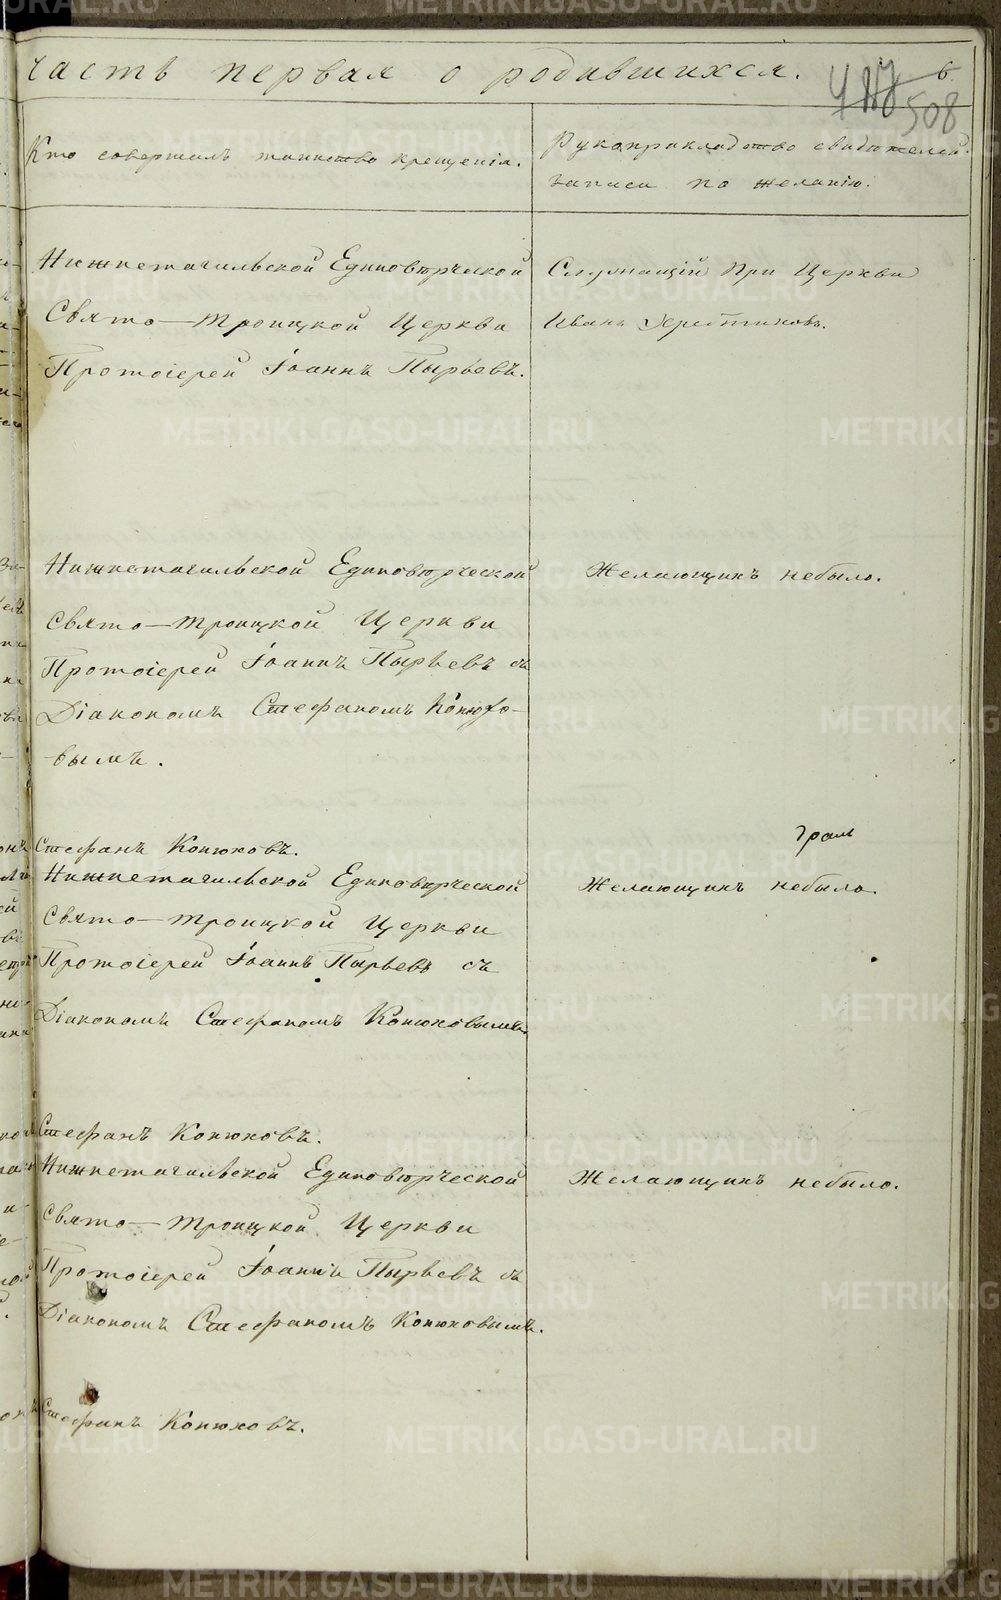 часть первая о родившихся.
6
508
Кто совершалъ таинство крещенія.
Рукоприкладство свидѣтелей
записи по желанію.
Нижнетагильской Единовѣрческой
Свято-Троицкой Церкви
Протоіерей Іоаннъ Пырьевъ.
Служащій при Церкви
Иванъ
Нижнетагильской Единовѣрческой
Свято-Троицкой Церкви
Протоіерей Іоаннъ Пырьевъ съ
Діакономъ Стефаномъ Конюхо-
вымъ.
Желающихъ небыло.
Стефанъ Конюховъ.
Нижнетагильской Единовѣрческой
Свято-Троицкой Церкви
Протоіерей Іоаннъ Пырьевъ съ
Діакономъ Стефаномъ Конюховымъ.
Желающихъ небыло.
Стефанъ Конюховъ.
Нижнетагильской Единовѣрческой
Свято-Троицкой Церкви
Протоіерей Іоаннъ Пырьевъ съ
Діакономъ Стефаномъ Конюховымъ.
Желающихъ небыло.
Стефанъ Конюховъ.
METRIKI.GASO-URAL.RU